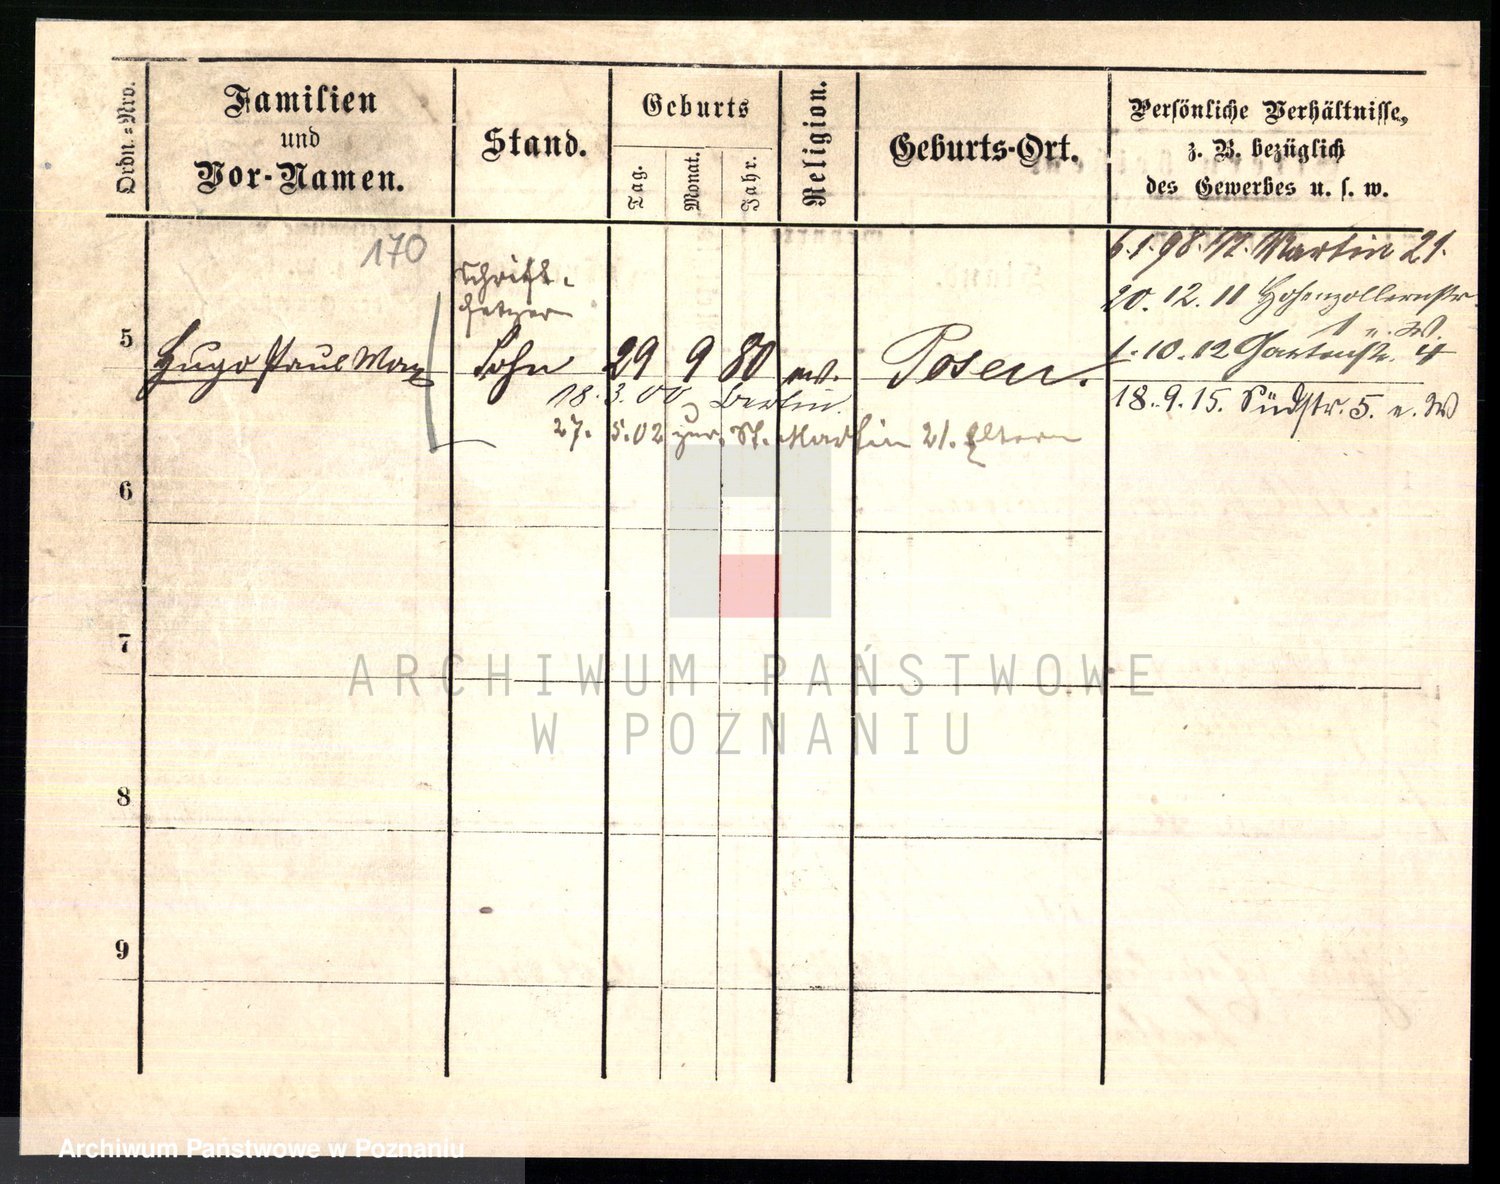 Ordn.=Nro.
Familien
und
Vor-Namen.
Stand.
Geburts
Tag.
Monat.
Jahr.
Religion.
Geburts-Ort.
Persönliche Verhältnisse,
z. B. bezüglich
des Gewerbes u. s. w.
170
6.1.98. St. Martin 21.
Schrift-
setzer
20.12.11 Hohenzollernstr.
5
Hugo Paul Max
Sohn
29
9
80
ev.
Posen.
1.10.12 Gartenstr. 4
18.3.00 Berlin.
18.9.15. Südstr. 5. e. W
27. 5.02 zur. St. Martin 21. Eltern
6
7
8
9
ARCHIWUM PAŃSTWOWE
W POZNANIU
Archiwum Państwowe w Poznaniu